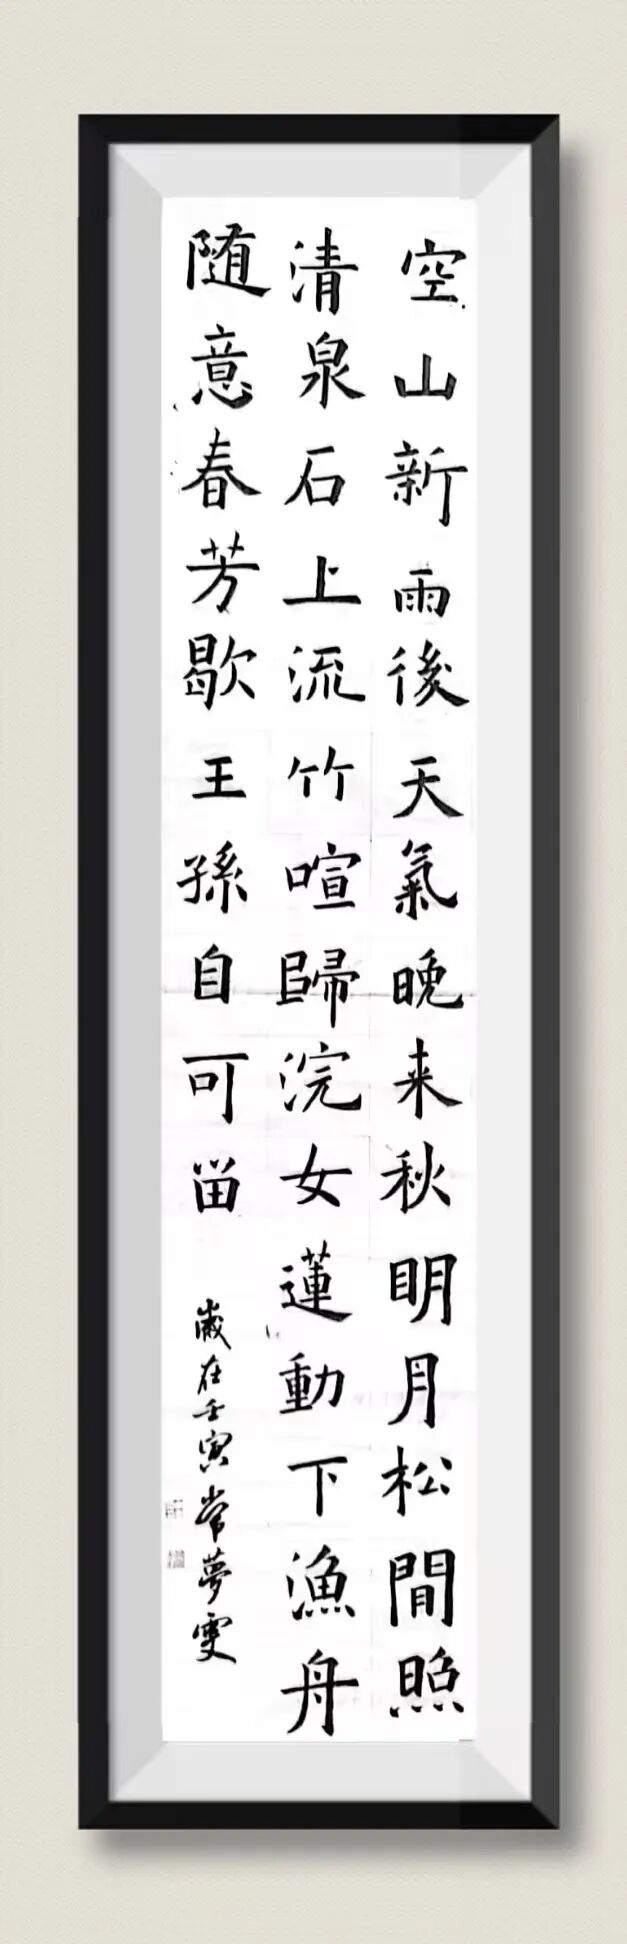 空山新雨後天氣晚来秋明月松間照
清泉石上流竹喧歸浣女蓮動下漁舟
随意春芳歇王孫自可留
歲在壬寅常夢雯